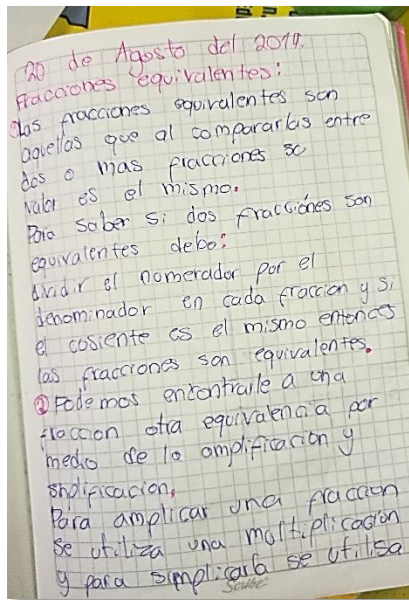 20 de Agosto del 2019.
Fracciones equivalentes:
las fracciones equivalentes son
aquellas que al compararlas entre
dos o mas fracciones su
valor es el mismo.
Para saber si dos fracciónes son
equivalentes debo:
dividir el nomerador por el
denominador en cada fraccion y si
el cosiente es el mismo entonces
las fracciones son equivalentes.
② Podemos entontrarle a una
fraccion otra equivalencia por
medio de la amplificacion y
Para amplicar una fraccion
se utiliza una multiplicación
y para simplicarla se utilisa
Scribe